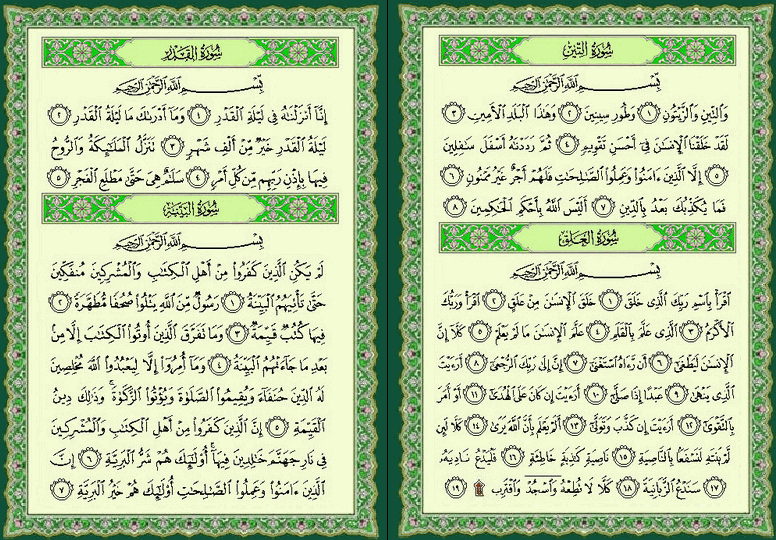 سُورَةُ التِّينِ
بِسْمِ ٱللَّهِ ٱلرَّحْمَٰنِ ٱلرَّحِيمِ
وَٱلتِّينِ وَٱلزَّيْتُونِ ١ وَطُورِ سِينِينَ ٢ وَهَٰذَا ٱلْبَلَدِ ٱلْأَمِينِ ٣
لَقَدْ خَلَقْنَا ٱلْإِنسَٰنَ فِىٓ أَحْسَنِ تَقْوِيمٍ ٤ ثُمَّ رَدَدْنَٰهُ أَسْفَلَ سَٰفِلِينَ
٥ إِلَّا ٱلَّذِينَ ءَامَنُوا۟ وَعَمِلُوا۟ ٱلصَّٰلِحَٰتِ فَلَهُمْ أَجْرٌ غَيْرُ مَمْنُونٍ ٦
فَمَا يُكَذِّبُكَ بَعْدُ بِٱلدِّينِ ٧ أَلَيْسَ ٱللَّهُ بِأَحْكَمِ ٱلْحَٰكِمِينَ ٨
سُورَةُ العَلَقِ
بِسْمِ ٱللَّهِ ٱلرَّحْمَٰنِ ٱلرَّحِيمِ
ٱقْرَأْ بِٱسْمِ رَبِّكَ ٱلَّذِى خَلَقَ ١ خَلَقَ ٱلْإِنسَٰنَ مِنْ عَلَقٍ ٢ ٱقْرَأْ وَرَبُّكَ
ٱلْأَكْرَمُ ٣ ٱلَّذِى عَلَّمَ بِٱلْقَلَمِ ٤ عَلَّمَ ٱلْإِنسَٰنَ مَا لَمْ يَعْلَمْ ٥ كَلَّآ إِنَّ
ٱلْإِنسَٰنَ لَيَطْغَىٰٓ ٦ أَن رَّءَاهُ ٱسْتَغْنَىٰٓ ٧ إِنَّ إِلَىٰ رَبِّكَ ٱلرُّجْعَىٰٓ ٨ أَرَءَيْتَ
ٱلَّذِى يَنْهَىٰ ٩ عَبْدًا إِذَا صَلَّىٰٓ ١٠ أَرَءَيْتَ إِن كَانَ عَلَى ٱلْهُدَىٰٓ ١١ أَوْ أَمَرَ
بِٱلتَّقْوَىٰٓ ١٢ أَرَءَيْتَ إِن كَذَّبَ وَتَوَلَّىٰٓ ١٣ أَلَمْ يَعْلَم بِأَنَّ ٱللَّهَ يَرَىٰ ١٤ كَلَّا لَئِن
لَّمْ يَنتَهِ لَنَسْفَعًۢا بِٱلنَّاصِيَةِ ١٥ نَاصِيَةٍ كَٰذِبَةٍ خَاطِئَةٍ ١٦ فَلْيَدْعُ نَادِيَهُۥ
١٧ سَنَدْعُ ٱلزَّبَانِيَةَ ١٨ كَلَّا لَا تُطِعْهُ وَٱسْجُدْ وَٱقْتَرِب ۩ ١٩
سُورَةُ القَدْرِ
بِسْمِ ٱللَّهِ ٱلرَّحْمَٰنِ ٱلرَّحِيمِ
إِنَّآ أَنزَلْنَٰهُ فِى لَيْلَةِ ٱلْقَدْرِ ١ وَمَآ أَدْرَىٰكَ مَا لَيْلَةُ ٱلْقَدْرِ ٢
لَيْلَةُ ٱلْقَدْرِ خَيْرٌ مِّنْ أَلْفِ شَهْرٍ ٣ تَنَزَّلُ ٱلْمَلَٰٓئِكَةُ وَٱلرُّوحُ
فِيهَا بِإِذْنِ رَبِّهِم مِّن كُلِّ أَمْرٍ ٤ سَلَٰمٌ هِىَ حَتَّىٰ مَطْلَعِ ٱلْفَجْرِ ٥
سُورَةُ البَيِّنَةِ
بِسْمِ ٱللَّهِ ٱلرَّحْمَٰنِ ٱلرَّحِيمِ
لَمْ يَكُنِ ٱلَّذِينَ كَفَرُوا۟ مِنْ أَهْلِ ٱلْكِتَٰبِ وَٱلْمُشْرِكِينَ مُنفَكِّينَ
حَتَّىٰ تَأْتِيَهُمُ ٱلْبَيِّنَةُ ١ رَسُولٌ مِّنَ ٱللَّهِ يَتْلُوا۟ صُحُفًا مُّطَهَّرَةً ٢
فِيهَا كُتُبٌ قَيِّمَةٌ ٣ وَمَا تَفَرَّقَ ٱلَّذِينَ أُوتُوا۟ ٱلْكِتَٰبَ إِلَّا مِنۢ
بَعْدِ مَا جَآءَتْهُمُ ٱلْبَيِّنَةُ ٤ وَمَآ أُمِرُوٓا۟ إِلَّا لِيَعْبُدُوا۟ ٱللَّهَ مُخْلِصِينَ
لَهُ ٱلدِّينَ حُنَفَآءَ وَيُقِيمُوا۟ ٱلصَّلَوٰةَ وَيُؤْتُوا۟ ٱلزَّكَوٰةَ ۚ وَذَٰلِكَ دِينُ
ٱلْقَيِّمَةِ ٥ إِنَّ ٱلَّذِينَ كَفَرُوا۟ مِنْ أَهْلِ ٱلْكِتَٰبِ وَٱلْمُشْرِكِينَ
فِى نَارِ جَهَنَّمَ خَٰلِدِينَ فِيهَآ ۚ أُو۟لَٰٓئِكَ هُمْ شَرُّ ٱلْبَرِيَّةِ ٦ إِنَّ
ٱلَّذِينَ ءَامَنُوا۟ وَعَمِلُوا۟ ٱلصَّٰلِحَٰتِ أُو۟لَٰٓئِكَ هُمْ خَيْرُ ٱلْبَرِيَّةِ ٧